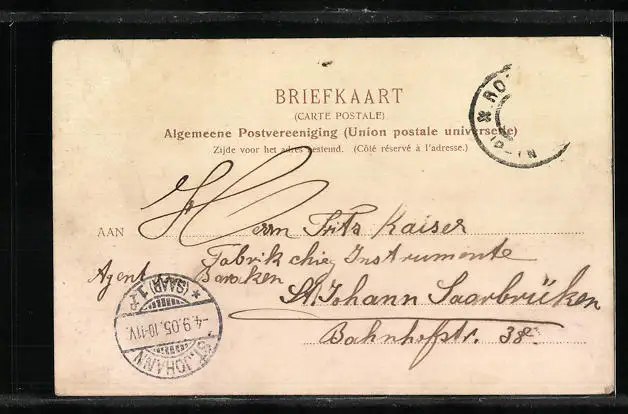 BRIEFKAART
(CARTE POSTALE)
Algemeene Postvereeniging (Union postale universelle)
Zijde voor het adres bestemd. (Côté réservé à l'adresse.)
AAN
Herrn Fritz Kaiser
Fabrik chirg Instrumente
Agent Baraken
St. Johann Saarbrücken
Bahnhofstr. 38
ST. JOHANN
-4.9.05.10-11V.
* (SAAR) 1 *
* RO